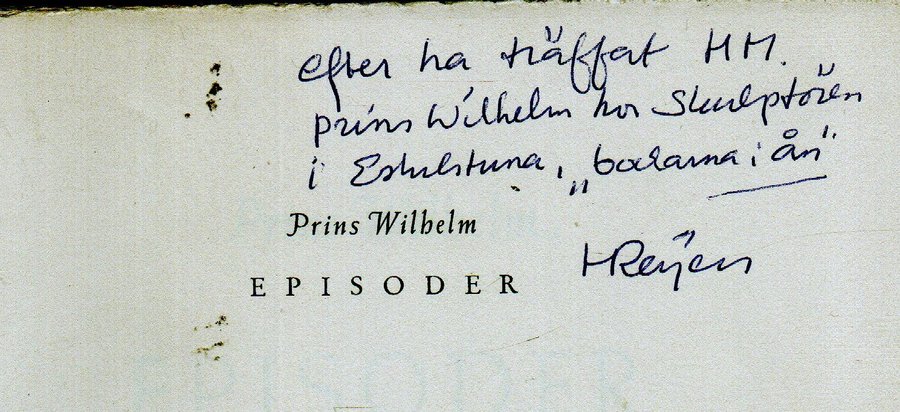 efter ha träffat HM.
prins Wilhelm hos Skulptören
i Eskilstuna, „bodarna i ån"
Prins Wilhelm
EPISODER